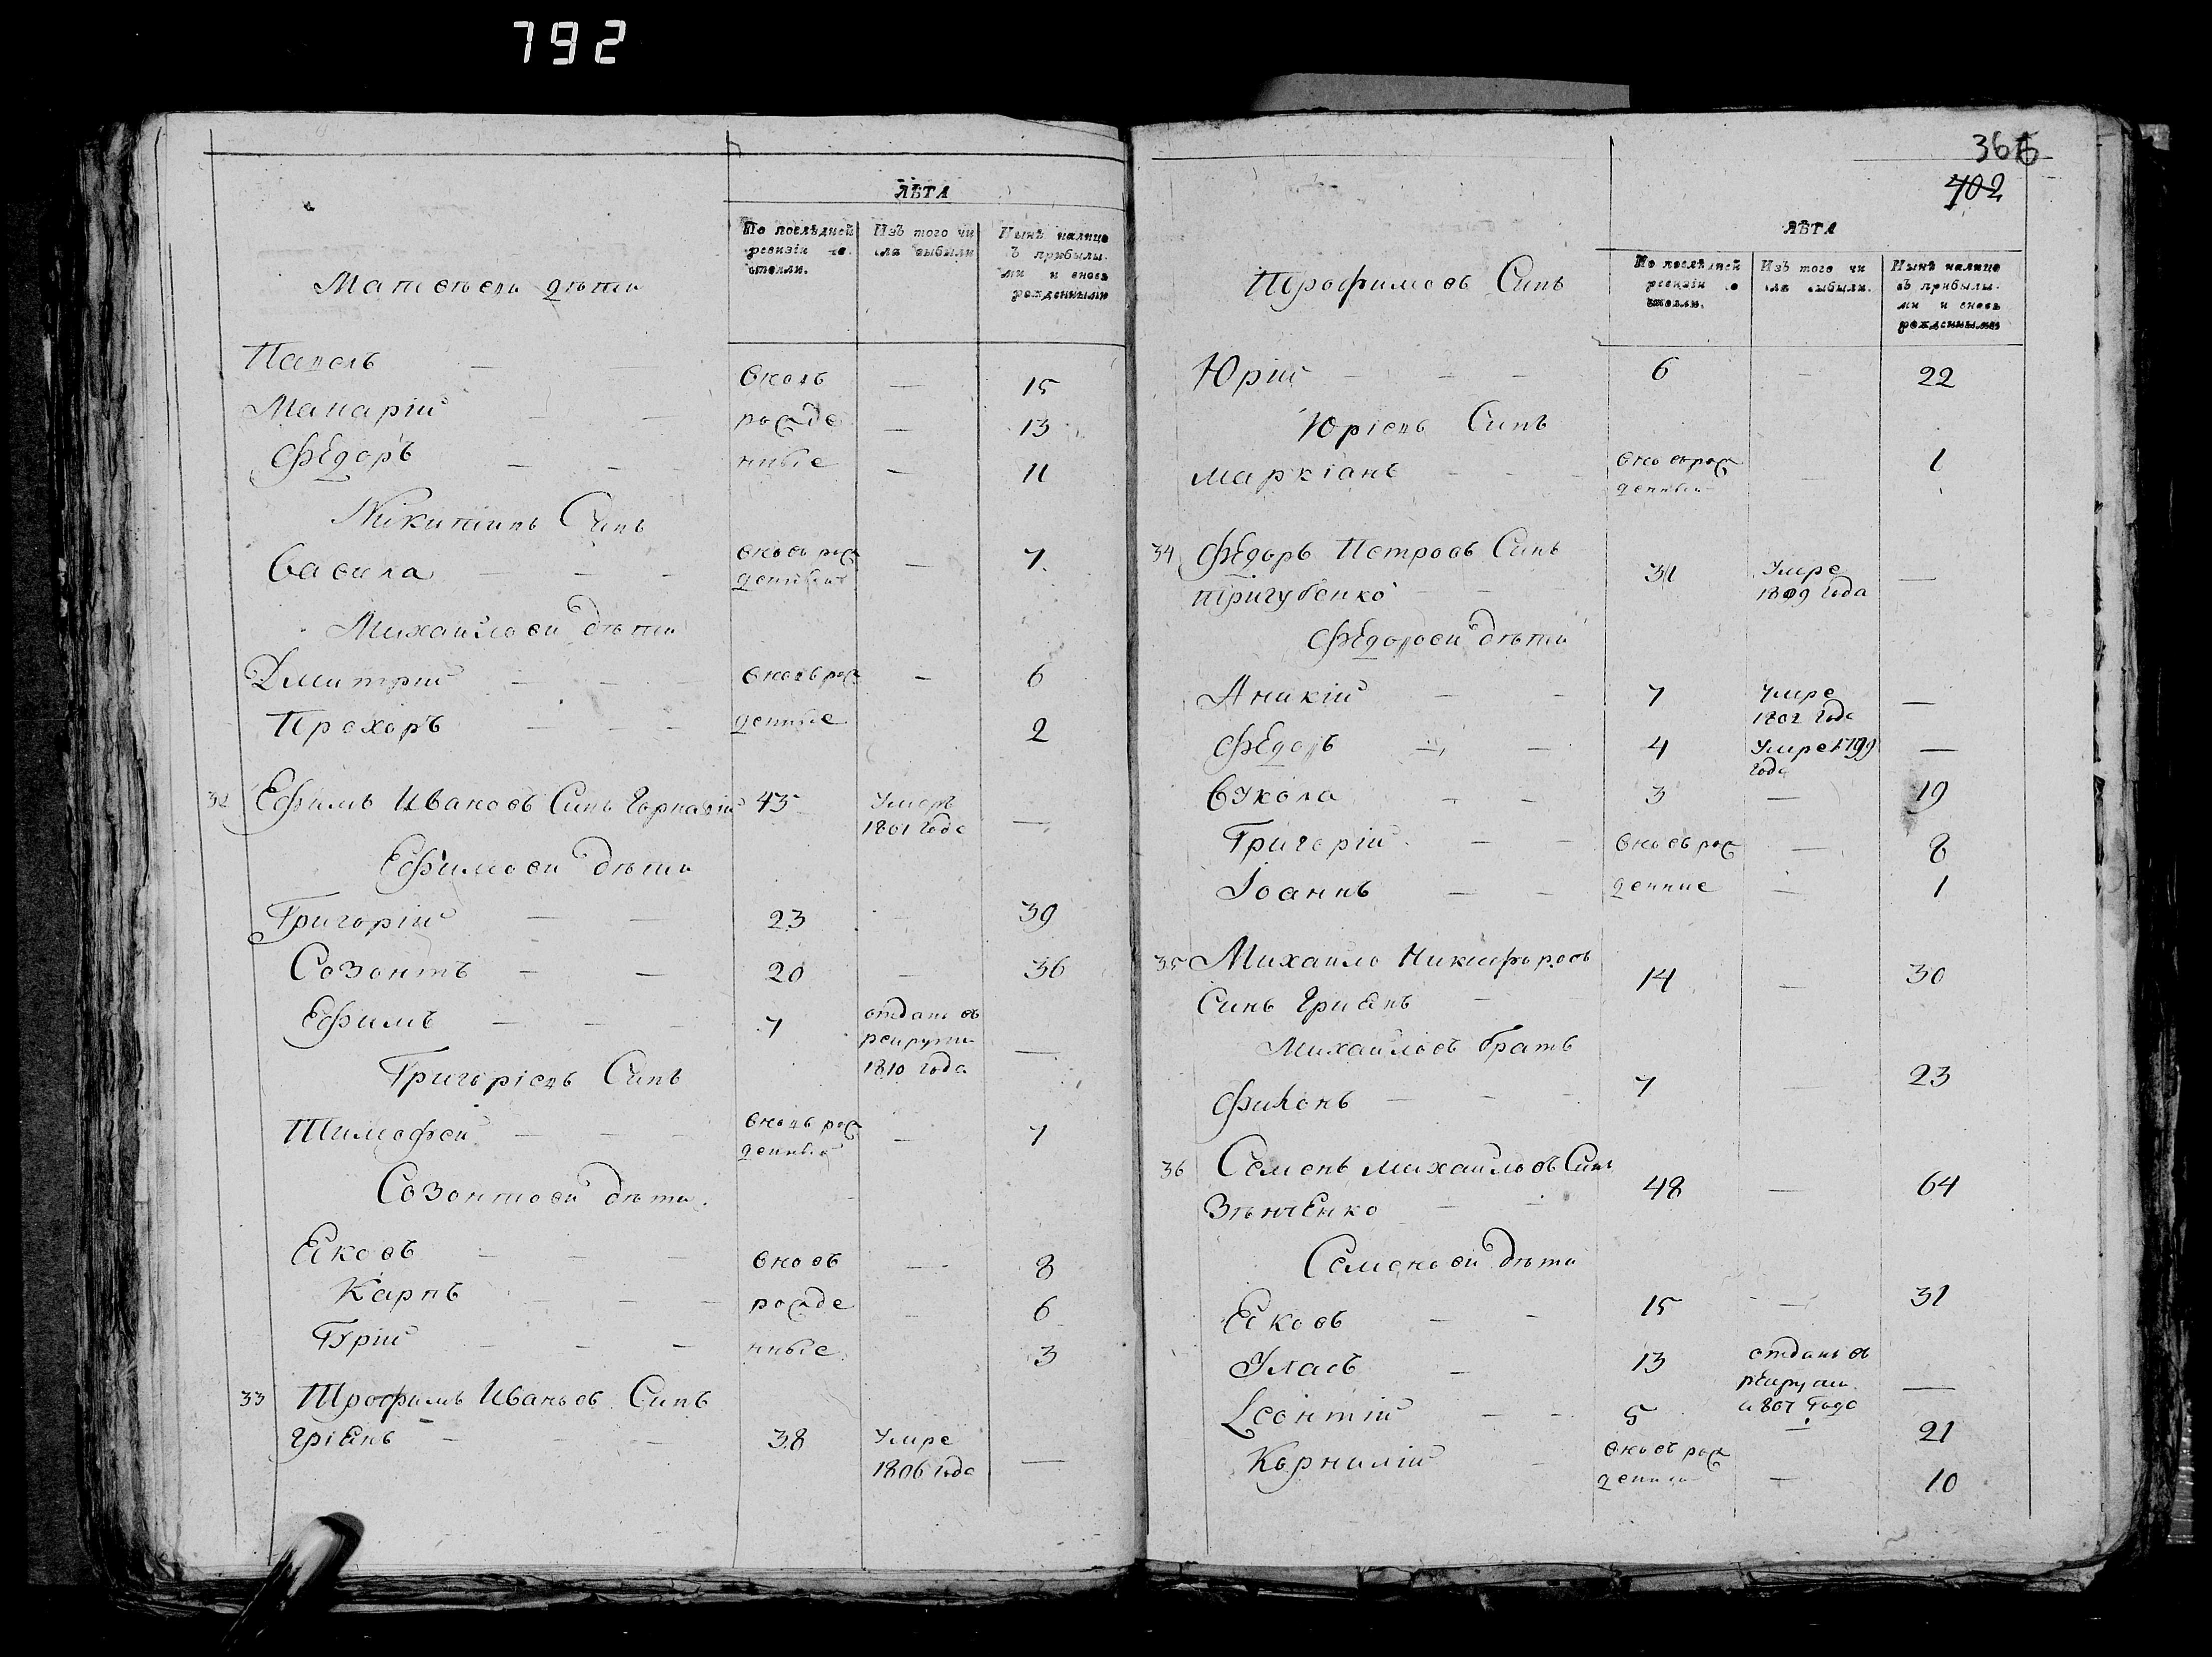 792
ЛѢТА
По послѣдней
ревизіи со-
стояли.
Изъ того чи
сла выбыли
Нынѣ налицо
съ прибылы-
ми и вновь
рожденными
Матвѣеви дѣти
Павелъ — — вновь — 15
Макарій — — рожде — 13
Федоръ — — — нные — 11
Никитинъ Синъ
Савила — — — вновь рож — 7
денный
Михайлови дѣти
Дмитрій — — — вновь рож — 6
Прохоръ — — — денные 2
32 Ефимъ Ивановъ Синъ 43 Умеръ —
1801 года
Ефимови дѣти
Григорій — — 23 — 39
Созонтъ — — 20 — 36
Ефимъ — — — 7 отданъ въ
рекруты —
1810 года
Григоріевъ Синъ
Тимофей — — — вновь рож — 7
денный
Созонтови дѣти
Яковъ — — — вновь — 8
Карпъ — — — рожде — 6
Юрій — — — нные 3
33 Трофимъ Ивановъ Синъ
Гріянъ — — — 38 Умре —
1806 года
366
702
ЛѢТА
По послѣдней
ревизіи со
стояли.
Изъ того чи
сла выбыли.
Нынѣ налицо
съ прибылы-
ми и вновь
рожденными
Трофимовъ Синъ
Юрій — — — 6 — 22
Юріевъ Синъ
Маркіанъ — — — вновь рож — 1
денный
34 Федоръ Петровъ Синъ
Тригубенко — — 31 Умре —
1809 года
Федорови дѣти
Аникій — — 7 Умре —
1802 года
Федоръ — — 4 Умре 1799 —
года
Вукола — — 3 — 19
Григорій — — вновь рож — 8
Іоаннъ — — денние — 1
35 Михайло Никифоровъ 14 — 30
Синъ Гриянъ —
Михайловъ братъ
Филонъ — — — 7 — 23
36 Семенъ Михайловъ Синъ 48 — 64
Зѣнченко — —
Семенови дѣти
Яковъ — — 15 — 31
Уласъ — 13 отданъ въ
рекруты —
1807 года
Леонтій — — 5 — 21
Корнилій — вновь рож — 10
денный